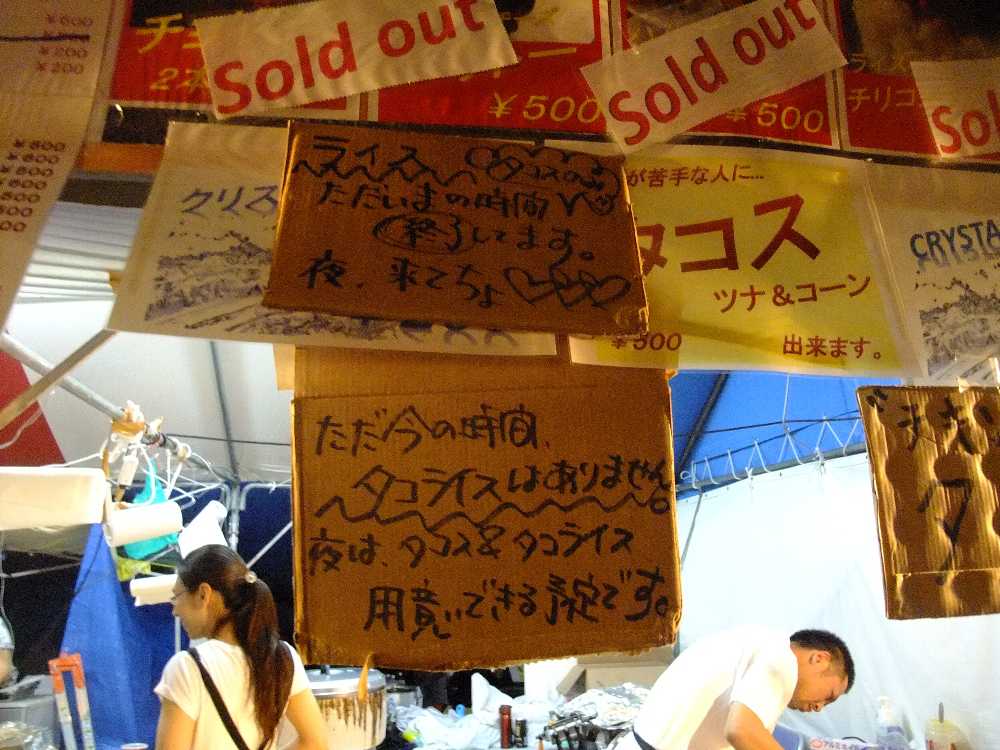 ¥600
¥200
¥200
¥600
¥600
¥600
¥600
¥500
¥600
Sold out
¥500
Sold out
¥500
チリコ
Sol
クリス
ライス
タコスのみ
ただいまの時間
終了してます。
夜、来てちょ
が苦手な人に...
タコス
ツナ&コーン
¥500
出来ます。
CRYSTA
ただ今の時間、
タコライスはありません。
夜は、タコス&タコライス
用意できる予定です。